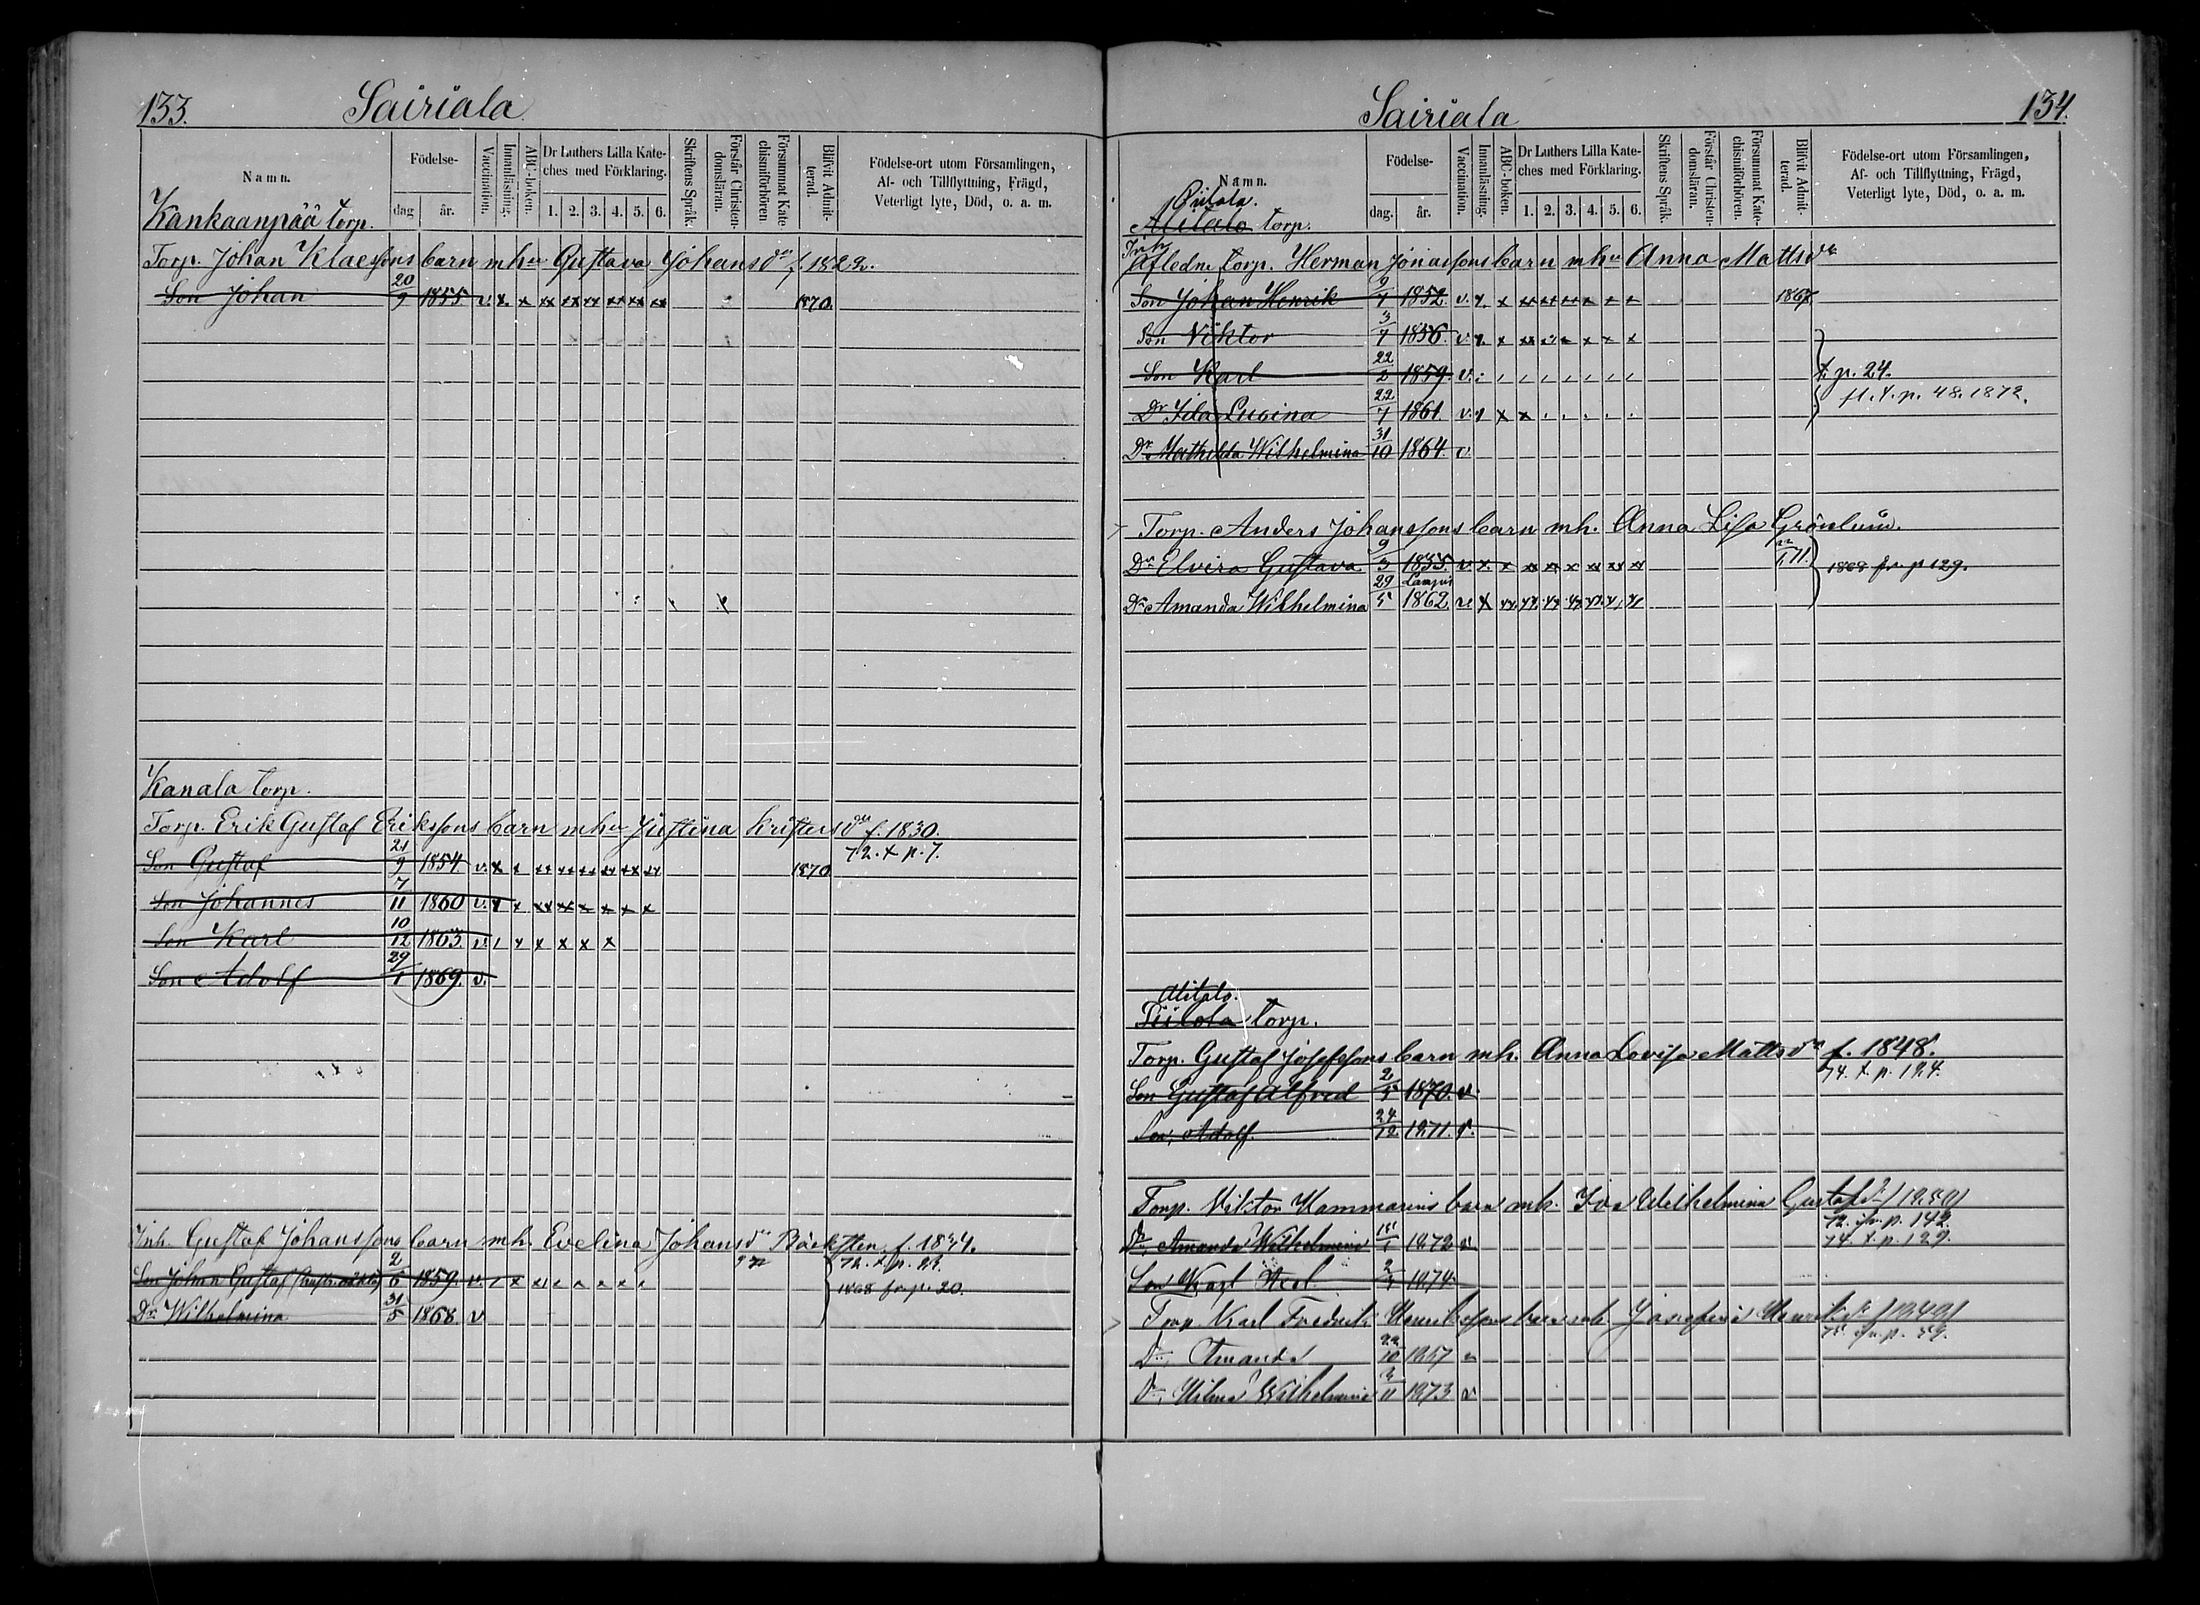 133. Sairiala
Namn. Födelse- dag år. Vaccination. Innanläsning. ABC-boken. Dr Luthers Lilla Kateches med Förklaring. 1. 2. 3. 4. 5. 6. Skriftens Språk. Förstår Christendomsläran. Försummat Katechismiförhören Blifvit Admitterad. Födelse-ort utom Församlingen, Af- och Tillflyttning, Frägd, Veterligt lyte, Död, o. a. m.
Kankaanpää torp.
Torp. Johan Klaessons barn m hu Gustava Johansdr f. 1822.
Son Johan 20/9 1855 v. x x xx xx xx xx xx xx 1870.
Kanala torp.
Torp. Erik Gustaf Erikssons barn m hu Justina Kristersdr f. 1830.
72. t. p. 7.
Son Gustaf 21/9 1854 v. x x xx xx xx xx xx xx 1870
Son Johannes 7/11 1860 v. x x xx xx x x x x
Son Karl 10/12 1863 v. / x x x x x
Son Adolf 29/1 1869. v.
Inh. Gustaf Johanssons barn m h. Evelina Johansdr Bäcksten f. 1834.
72. t. p. 23.
Son Johan Gustaf 2/6 1859. v. / x
1868 fr. p. 20.
Dr Wilhelmina 31/5 1868 v
Sairiala 134.
Namn. Födelse- dag. år. Vaccination. Innanläsning. ABC-boken. Dr Luthers Lilla Kateches med Förklaring. 1. 2. 3. 4. 5. 6. Skriftens Språk. Förstår Christendomsläran. Försummat Katechismiförhören. Blifvit Admitterad. Födelse-ort utom Församlingen, Af- och Tillflyttning, Frägd, Veterligt lyte, Död, o. a. m.
Piilola.
Alitalo torp.
Inh.
Afledne torp. Herman Jonassons barn m hu Anna Mattsdr
Son Johan Henrik 9/4 1852. v. x. x xx xx xx x 1867.
Son Viktor 3/7 1856. v. x. x xx x x x
Son Karl 22/2 1859. v.
t. p. 24.
fl. t. p. 48. 1872.
Dr Ida Lusina 22/7 1861. v. x x x
Dr Mathilda Wilhelmina 31/10 1864. v.
Torp. Anders Johanssons barn m h. Anna Lisa Grönlund.
Dr Elvira Gustava 9/3 1855. v. x. x xx xx x xx xx xx 71. 1868 fr. p 129.
Dr Amanda Wilhelmina 29/5 1862 v. x
Alitalo.
Piilola torp.
Torp. Gustaf Josefssons barn m h. Anna Lovisa Mattsdr f. 1848.
74. t. p. 124.
Son Gustaf Alfred 2/5 1870. v.
Son, Adolf. 24/12 1871. v.
Torp. Viktor Hammarins barn m h. Ida Wilhelmina Gustafsdr
72. fr. p. 142.
Dr Amanda Wilhelmina 1872 v
74. t. p. 129.
Son Karl Axel 1874
Torp. Karl Fredrik Henrikssons barn m h. Josefina Henriksdr
75. fr. p. 59.
Dr, Amanda
Dr, Hilma Wilhelmina 3/11 1873 v